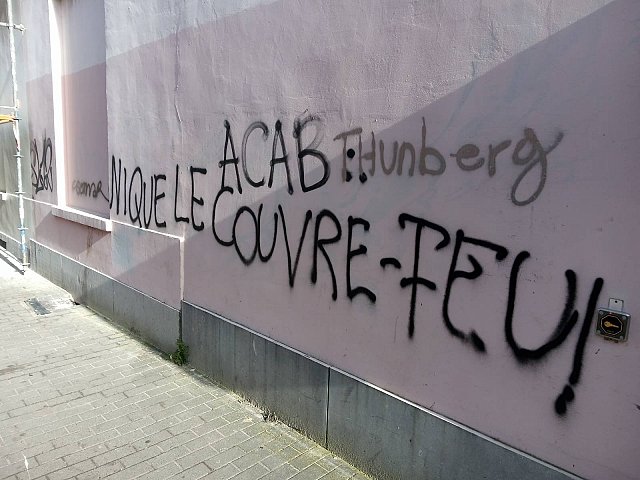 ACAB THunberg
NIQUE LE
COUVRE-FEU!